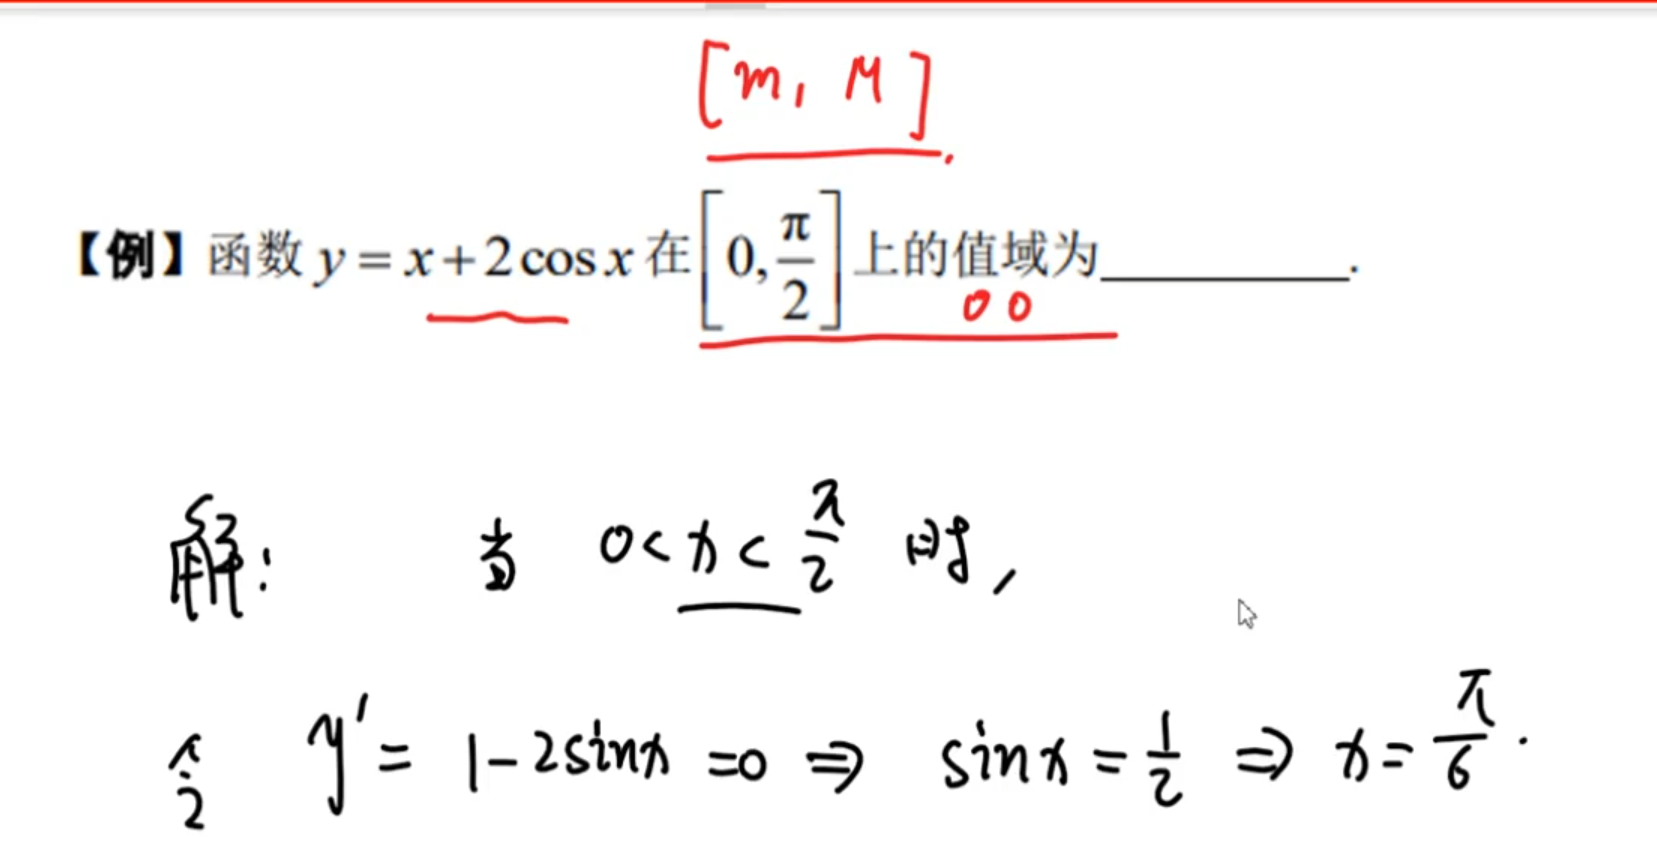 [m, M].
【例】函数 y = x + 2cos x 在 [0, π/2] 上的值域为__________.
解: 当 0 < x < π/2 时,
令 y' = 1 - 2sinx = 0 ⇒ sinx = 1/2 ⇒ x = π/6.